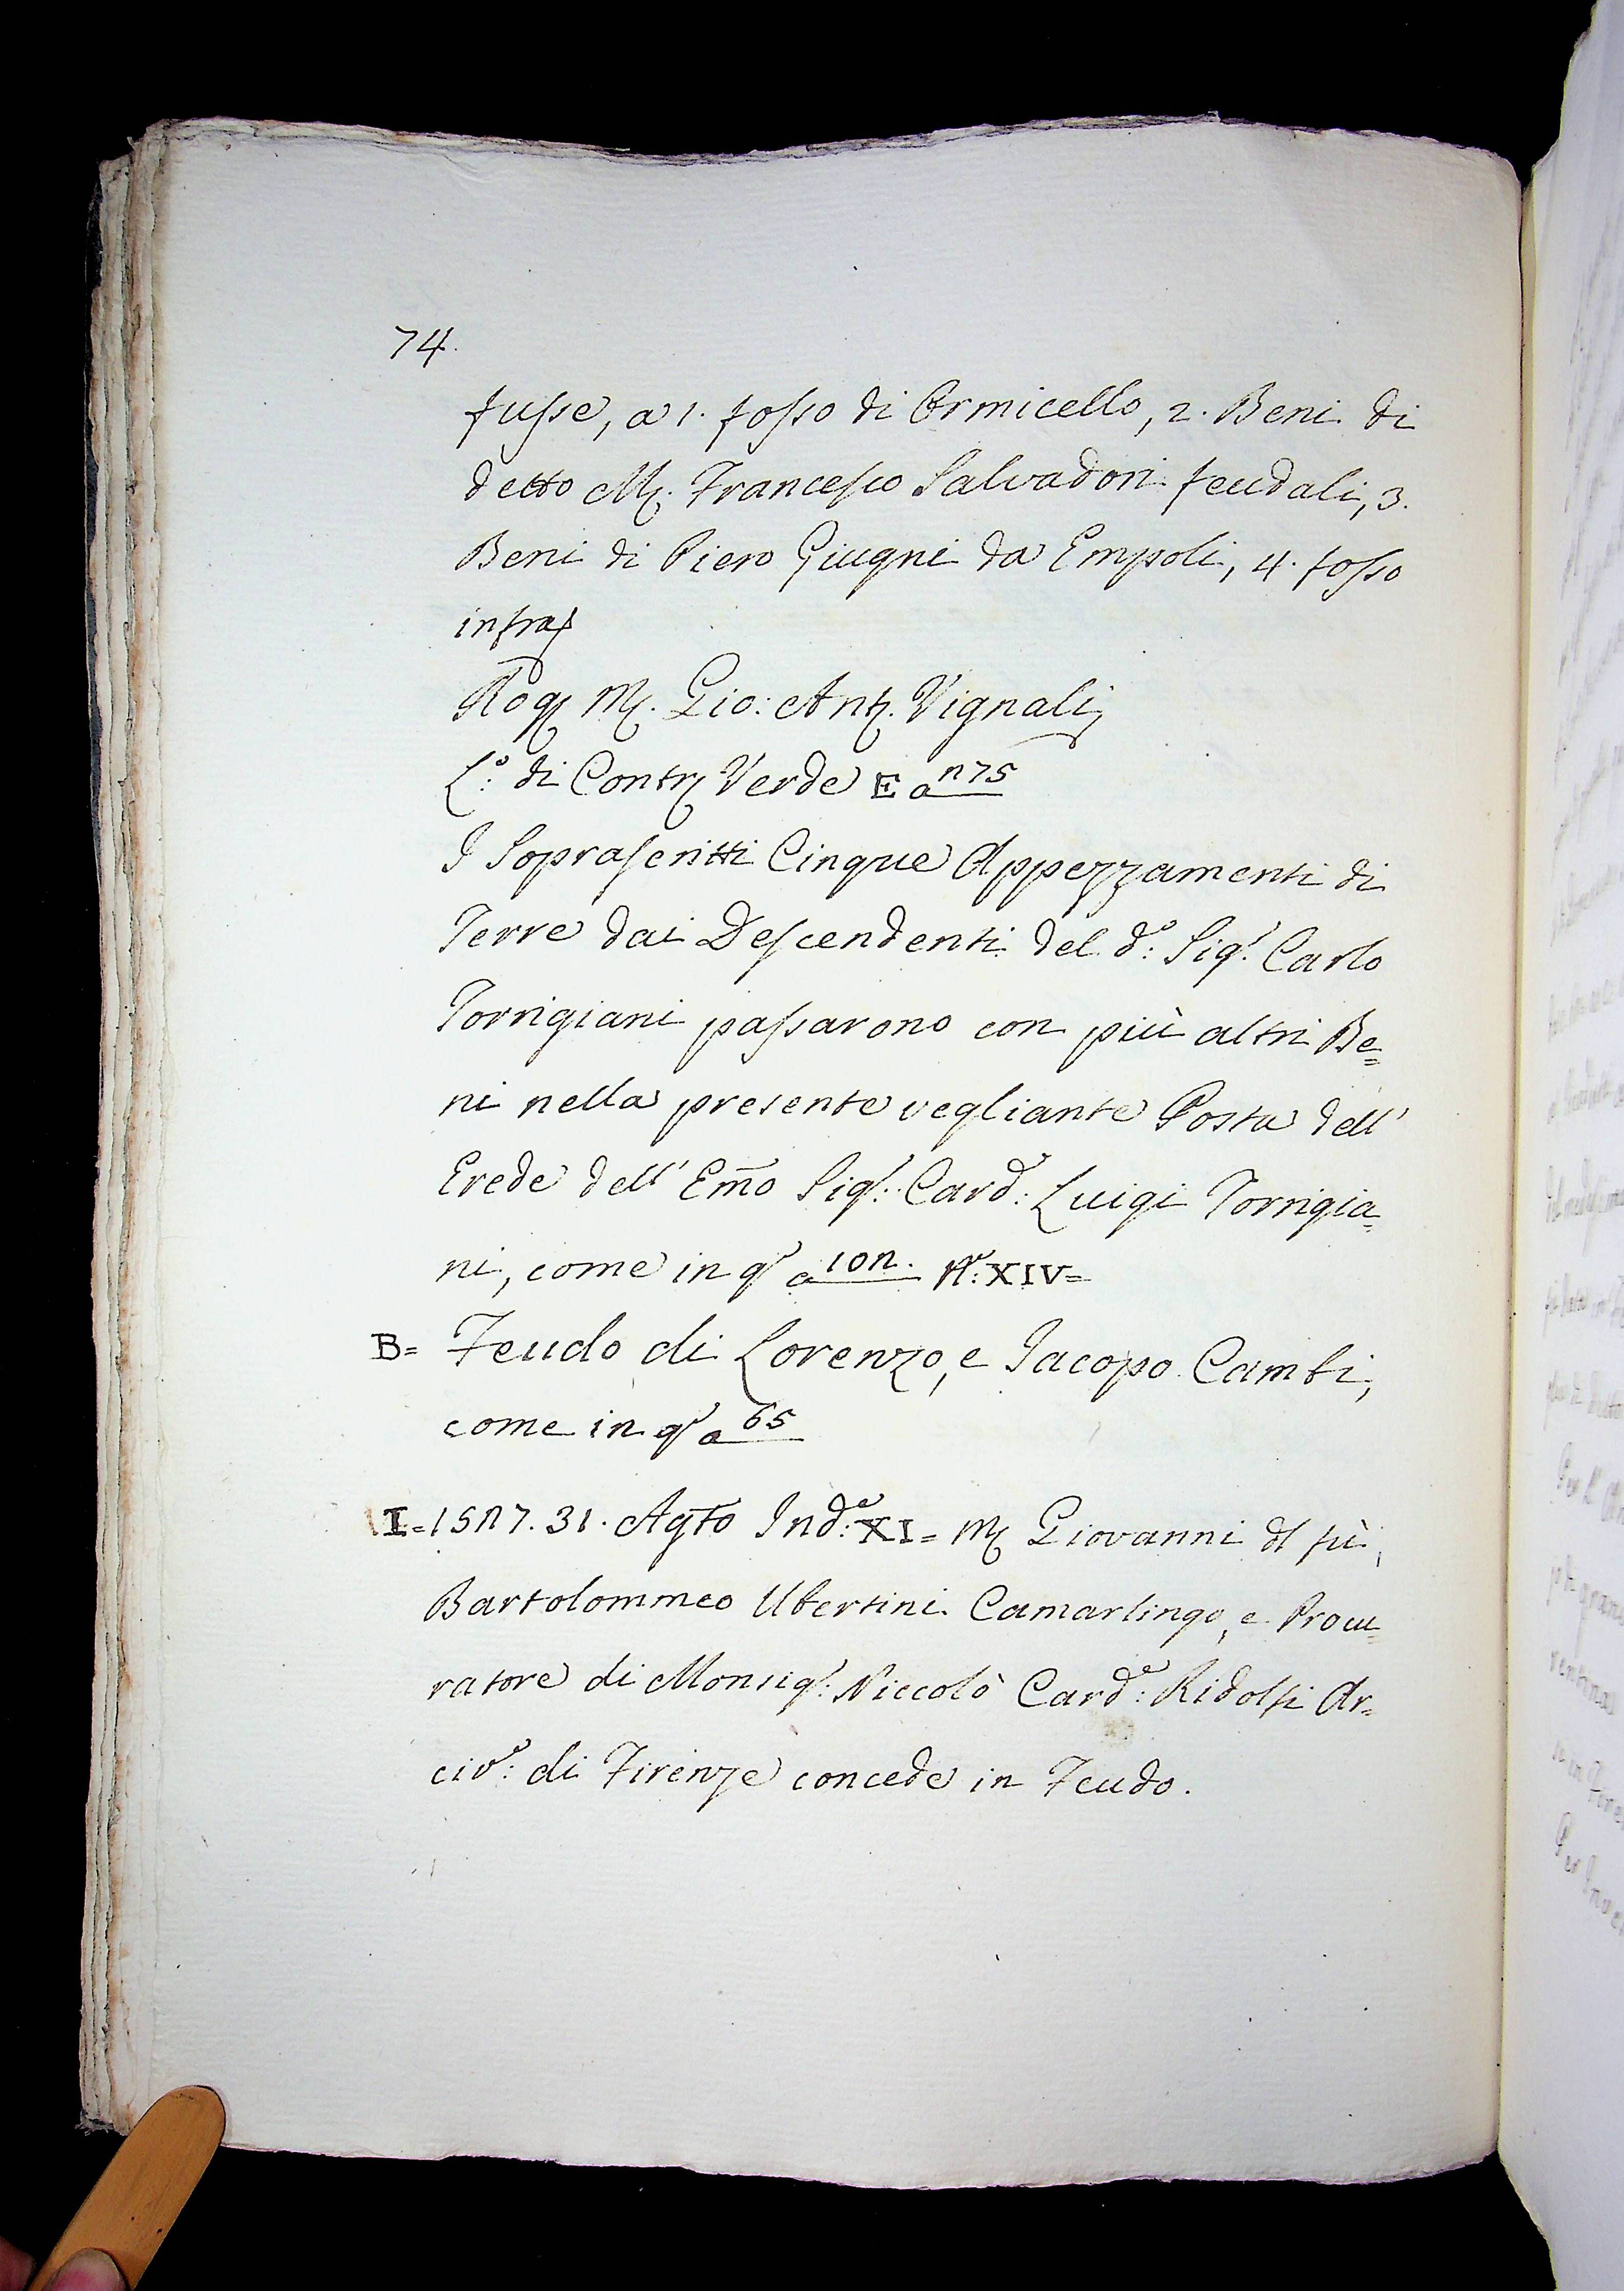 74.
fusse, a 1. fosso di Ormicello, 2. Beni di
detto M. Francesco Salvadori feudali, 3.
Beni di Piero Giugni da Empoli, 4. fosso
infra
Rog. M. Gio: Ant. Vignali
L.º di Contr. Verde E a 275
I Soprascritti Cinque Appezzamenti di
Terre dai Descendenti del d:º Sig.r Carlo
Torrigiani passarono con più altri Be=
ni nella presente vegliante Posta dell'
Erede dell' Em̃o Sig.r: Card:e Luigi Torrigia=
ni, come in q.o a 102. N.o: XIV=
B= Feudo di Lorenzo, e Jacopo Cambi,
come in q.o a 65
I= 1527. 31. Agto Ind:e XI= M. Giovanni di fù
Bartolommeo Ubertini Camarlingo, e Procu=
ratore di Monsig.r: Niccolò Card:e Ridolfi Ar=
civ:o di Firenze concede in Feudo.